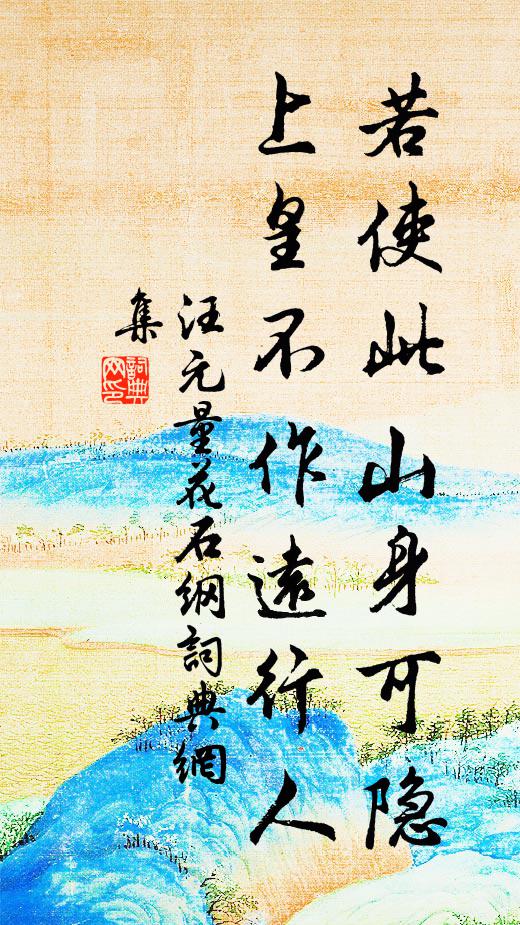 若使此山身可隐
上皇不作遠行人
汪元量花石纲詞典網
集
詞典
网印